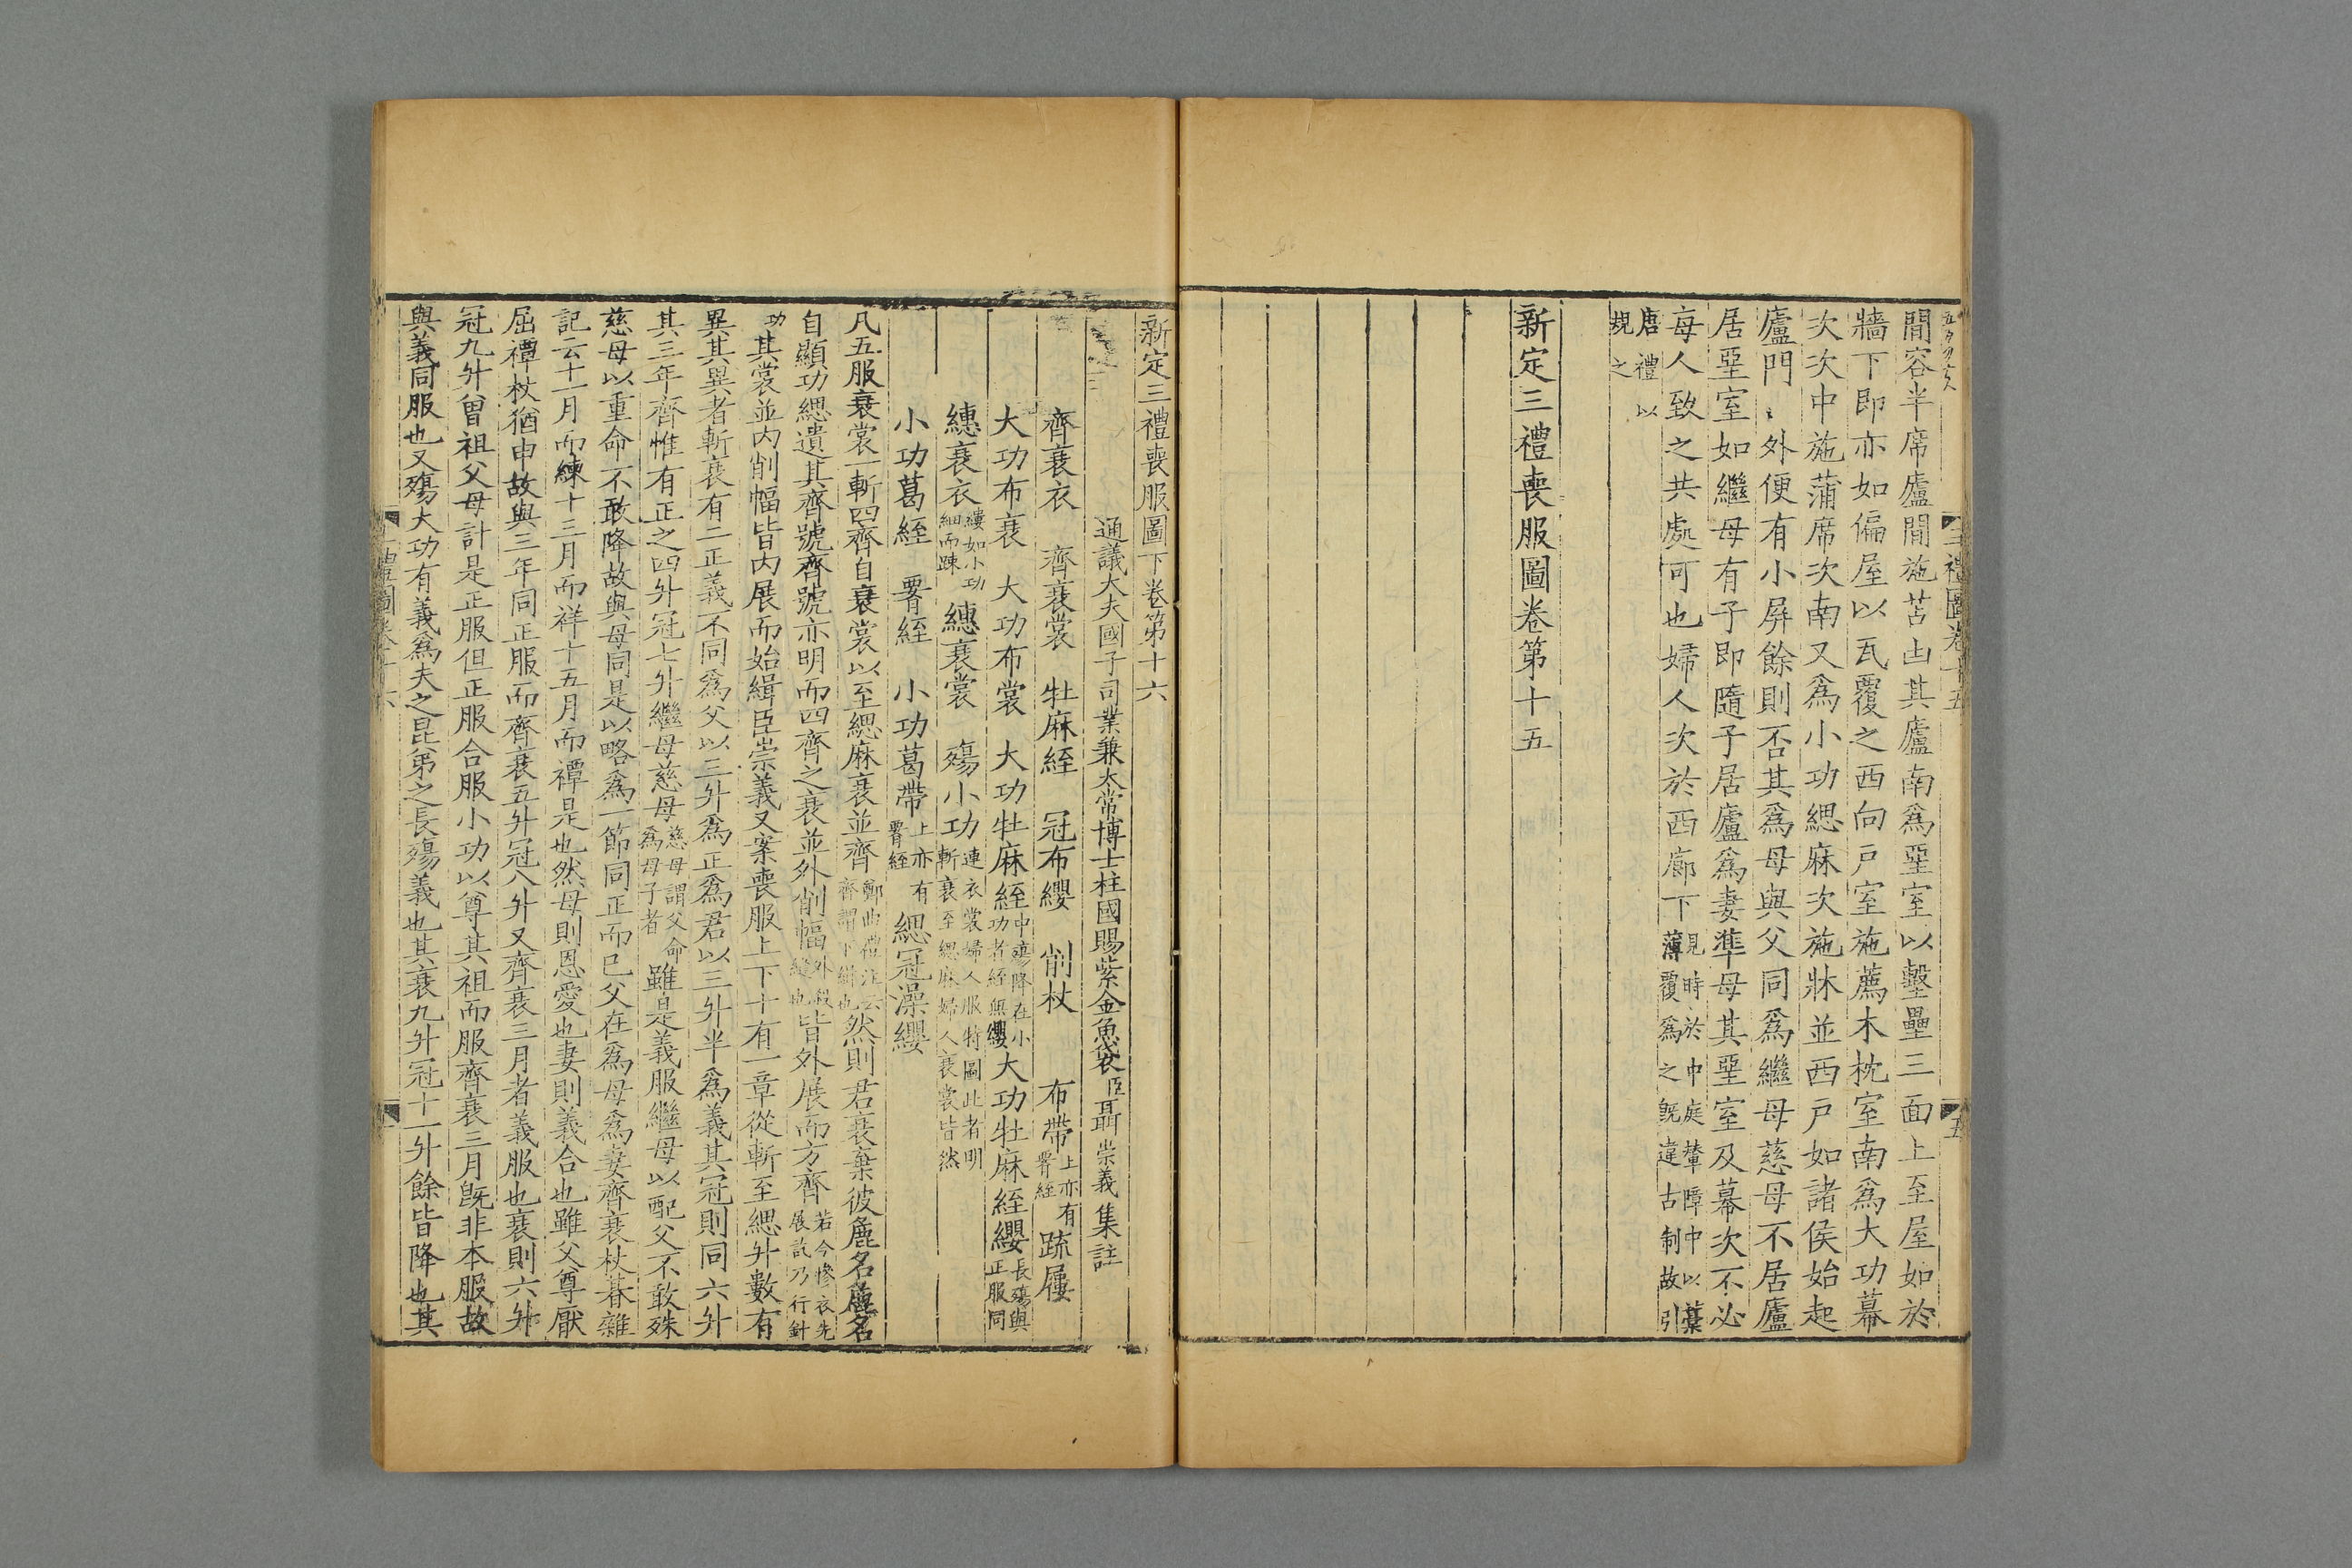 三禮圖卷十五
五
間容半席廬間施苫凷其廬南爲堊室以墼壘三面上至屋如於
牆下即亦如偏屋以瓦覆之西向戸室施薦木枕室南爲大功幕
次次中施蒲席次南又爲小功緦麻次施牀並西戸如諸侯始起
廬門外便有小屏餘則否其爲母與父同爲繼母慈母不居廬
居堊室如繼母有子即隨子居廬爲妻準母其堊室及幕次不必
每人致之共處可也婦人次於西廊下見時於中庭輦障中以藁薄覆爲之旣違古制故引
唐禮以規之
新定三禮喪服圖卷第十五
新定三禮喪服圖下卷第十六
通議大夫國子司業兼太常博士柱國賜紫金魚袋臣聶崇義集註
齊衰衣 齊衰裳 牡麻絰 冠布纓 削杖 布帶上亦有䙅絰 疏屨
大功布衰 大功布裳 大功牡麻絰中殤降在小功者絰無纓 大功牡麻絰纓長殤與正服同
繐衰衣縷如小功細而踈 繐衰裳 殤小功連衣裳婦人服特圖此者明斬衰至緦麻婦人衰裳皆然
小功葛絰 䙅絰 小功葛帶上亦有䙅絰 緦冠澡纓
凡五服衰裳一斬四齊自衰裳以至緦麻衰並齊鄭曲禮注云齊謂下緝也然則君衰棄彼麁名麁名
自顯功緦遺其齊號齊號亦明而四齊之衰並外削幅外殺縫也皆外展而方齊若今慘衣先展訖乃行針
功其裳並内削幅皆内展而始緝臣崇義又案喪服上下十有一章從斬至緦升數有
異其異者斬衰有二正義不同爲父以三升爲正爲君以三升半爲義其冠則同六升
其三年齊惟有正之四升冠七升繼母慈母慈母謂父命爲母子者雖是義服繼母以配父不敢殊
慈母以重命不敢降故與母同是以略爲一節同正而已父在爲母爲妻齊衰杖朞雜
記云十一月而練十三月而祥十五月而禫是也然母則恩愛也妻則義合也雖父尊厭
屈禫杖猶申故與三年同正服而齊衰五升冠八升又齊衰三月者義服也衰則六升
冠九升曾祖父母計是正服但正服合服小功以尊其祖而服齊衰三月旣非本服故
與義同服也又殤大功有義爲夫之昆弟之長殤義也其衰九升冠十一升餘皆降也其
三禮圖卷十六